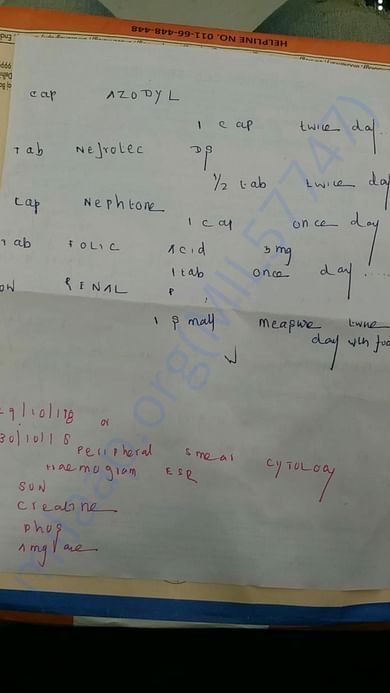 HELPLINE NO. 011-66-448-448
cap AZODYL
1 cap twice day
Tab Nefrotec DS
1/2 tab twice day
cap Nephtone
1 cap once day
Tab FOLIC Acid 5mg
1 tab once day .....
RENAL P
1 small measure twice
day with food
29/10/18 or
30/10/18
Peripheral Smear CYTOLOGY
Haemogram ESR
BUN
Creatine
Phos
Amylase
milaap.org(MIL57747)